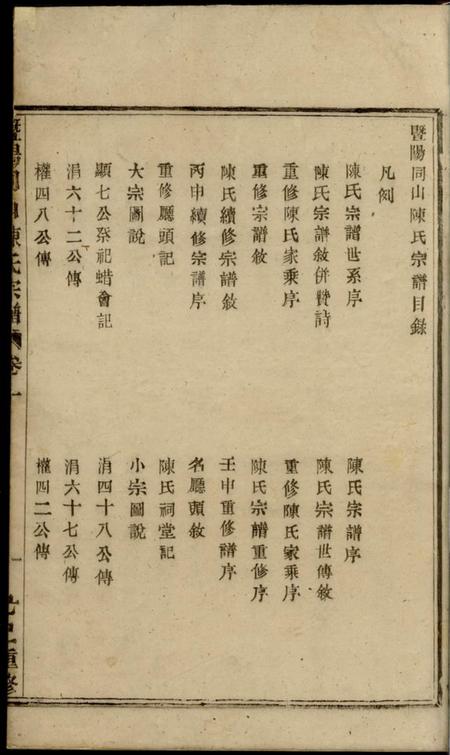 暨陽同山陳氏宗譜目錄
凡例
陳氏宗譜世系序
陳氏宗譜序
陳氏宗譜敘併贊詩
陳氏宗譜世傳敘
重修陳氏家乘序
重修陳氏家乘序
重修宗譜敘
陳氏宗譜重修序
陳氏續修宗譜敘
壬申重修譜序
丙申續修宗譜序
名廳頭敘
重修廳頭記
陳氏祠堂記
大宗圖說
小宗圖說
顯七公祭祀蜡會記
涓四十八公傳
涓六十二公傳
涓六十七公傳
權四八公傳
權四二公傳
暨陽同山陳氏宗譜
卷一
一
重修